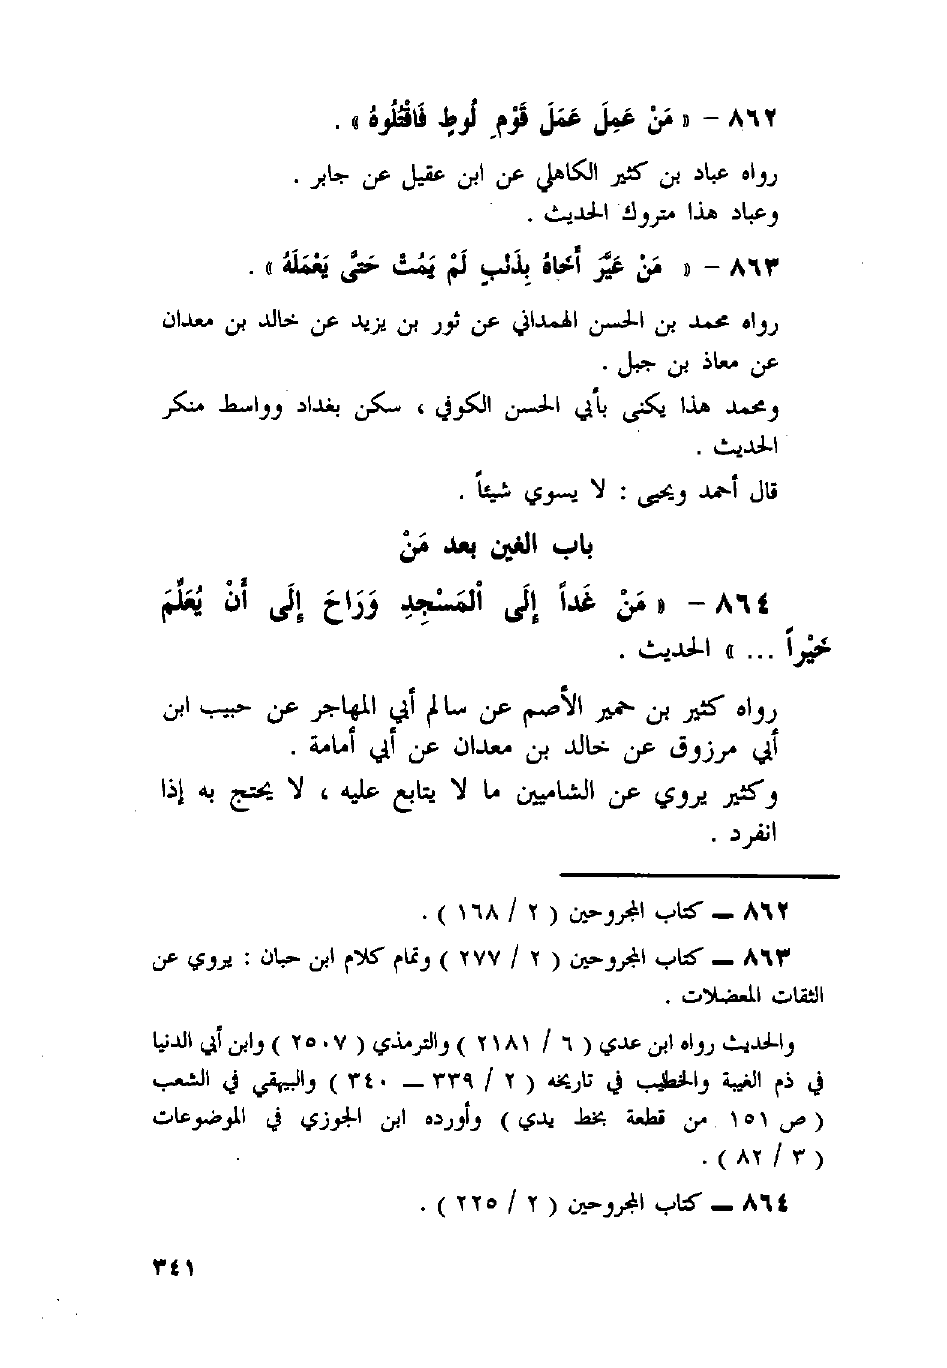 ٨٦٢ - « مَنْ عَمِلَ عَمَلَ قَوْمِ لُوطٍ فَاقْتُلُوهُ » .
رواه عباد بن كثير الكاهلي عن ابن عقيل عن جابر .
وعباد هذا متروك الحديث .
٨٦٣ - « مَنْ عَيَّرَ أَخَاهُ بِذَنْبٍ لَمْ يَمُتْ حَتَّى يَعْمَلَهُ » .
رواه محمد بن الحسن الهمداني عن ثور بن يزيد عن خالد بن معدان
عن معاذ بن جبل .
ومحمد هذا يكنى بأبي الحسن الكوفي ، سكن بغداد وواسط منكر
الحديث .
قال أحمد ويحيى : لا يسوي شيئاً .
باب الغين بعد مَنْ
٨٦٤ - « مَنْ غَداً إِلَى اَلْمَسْجِدِ وَرَاحَ إِلَى أَنْ يُعَلِّمَ
خَيْراً ... » الحديث .
رواه كثير بن حمير الأصم عن سالم أبي المهاجر عن حبيب ابن
أبي مرزوق عن خالد بن معدان عن أبي أمامة .
وكثير يروي عن الشاميين ما لا يتابع عليه ، لا يحتج به إذا
انفرد .
٨٦٢ ــ كتاب المجروحين ( ٢ / ١٦٨ ) .
٨٦٣ ــ كتاب المجروحين ( ٢ / ٢٧٧ ) وتمام كلام ابن حبان : يروي عن
الثقات المعضلات .
والحديث رواه ابن عدي ( ٦ / ٢١٨١ ) والترمذي ( ٢٥٠٧ ) وابن أبي الدنيا
في ذم الغيبة والخطيب في تاريخه ( ٢ / ٣٣٩ ــ ٣٤٠ ) والبيهقي في الشعب
( ص ١٥١ من قطعة بخط يدي ) وأورده ابن الجوزي في الموضوعات
( ٣ / ٨٢ ) .
٨٦٤ ــ كتاب المجروحين ( ٢ / ٢٢٥ ) .
٣٤١